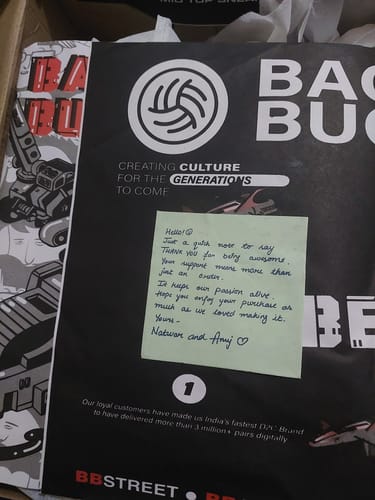 BA
BU
BAC
BUC
CREATING CULTURE
FOR THE GENERATIONS
TO COME
Hello! ☺
Just a quick note to say
THANK YOU for being awesome.
Your support means more than
just an order.
It keeps our passion alive.
Hope you enjoy your purchase as
much as we loved making it.
Yours -
Natwar and Anuj ♡
BE
1
Our loyal customers have made us India's fastest D2C Brand
to have delivered more than 3 million+ pairs digitally
BBSTREET •